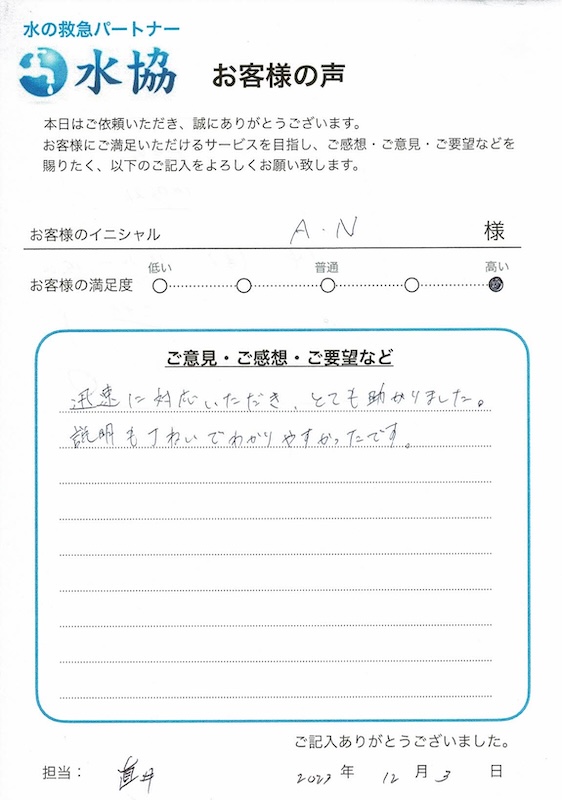 水の救急パートナー
水協 お客様の声
本日はご依頼いただき、誠にありがとうございます。
お客様にご満足いただけるサービスを目指し、ご感想・ご意見・ご要望などを
賜りたく、以下のご記入をよろしくお願い致します。
お客様のイニシャル A.N 様
低い 普通 高い
お客様の満足度
ご意見・ご感想・ご要望など
迅速に対応いただき、とても助かりました。
説明も丁ねいでわかりやすかったです。
ご記入ありがとうございました。
担当： 2023 年 12 月 3 日